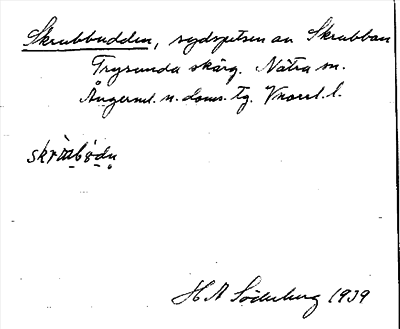 Skrubbudden, sydspetsen av Skrubban
Trysunda skärg. Nätra sn.
Ångerml. n. doms. tg. Vnorrl. l.
H A Söderberg 1939